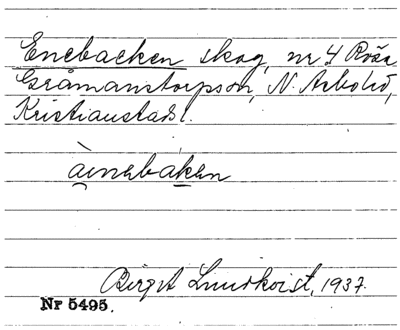 Enebacken skog, nr 4 Röða
Gråmanstorpsson, N. Åsbohd,
Kristianstads l.
àinabakan
Birgit Lundkvist, 1937.
Nr 5495.